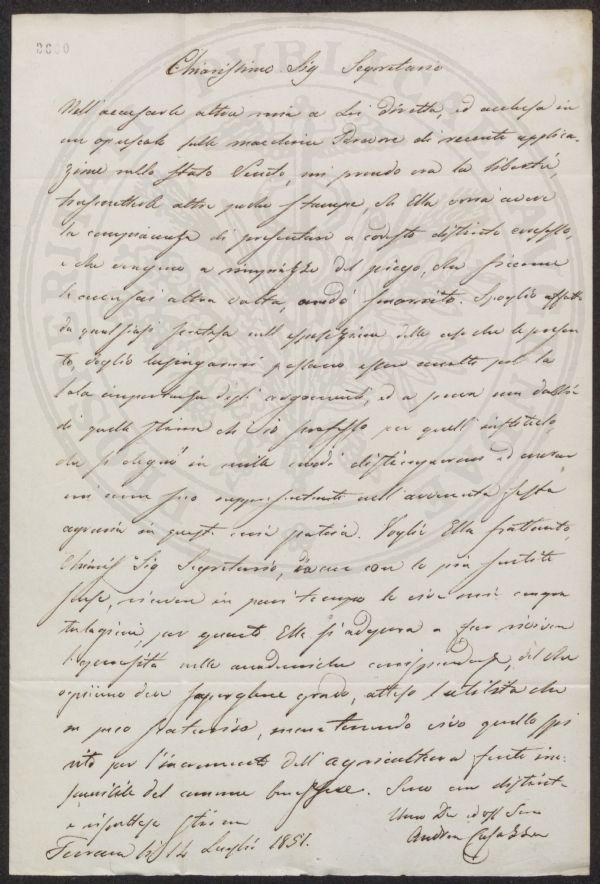 3600
Chiarissimo Sig Segretario
Nell' accusarle altra mia a Lei diretta, ed acclusa in
un opuscolo sulle macchine di recente applica-
zione nello Stato Veneto, mi prendo ora la libertà,
trasmetterle altre poche stampe, ch' Ella vorrà avere
la compiacenza di presentare a codesto distinto consesso,
e che vengono a del piego, che siccome
altra volta, andò smarrito. Spoglio affat-
to qualsiasi pretesa nell' esposizione delle cose che le presen-
to, voglio lusingarmi possano essere accolte per la
sola importanza degli argomenti, ed a prova non dubbia
di quella stima ch' io professo per quell' instituto,
che si degnò in mille modi distinguermi ed
mi suo rappresentante nell' avvenuta festa
agraria in questa mia patria. Voglia Ella frattanto,
Chiaris Sig Segretario, con le più sentite
scuse, ricevere in pari tempo le vive mie congra
tulazioni, per quanto Ella si adopera a far rivivere
nelle accademiche corrispondenze, del che
opinione deve grado, atteso l' utilità che
in poco mantenendo vivo quello spi
rito per l' incremento dell' agricoltura fonte ine-
sauribile del comune benessere. Sono con distinta
e rispettosa stima
Umo Dev ed Obb Serv
Ferrara li 14 Luglio 1851.
Andrea Casazza